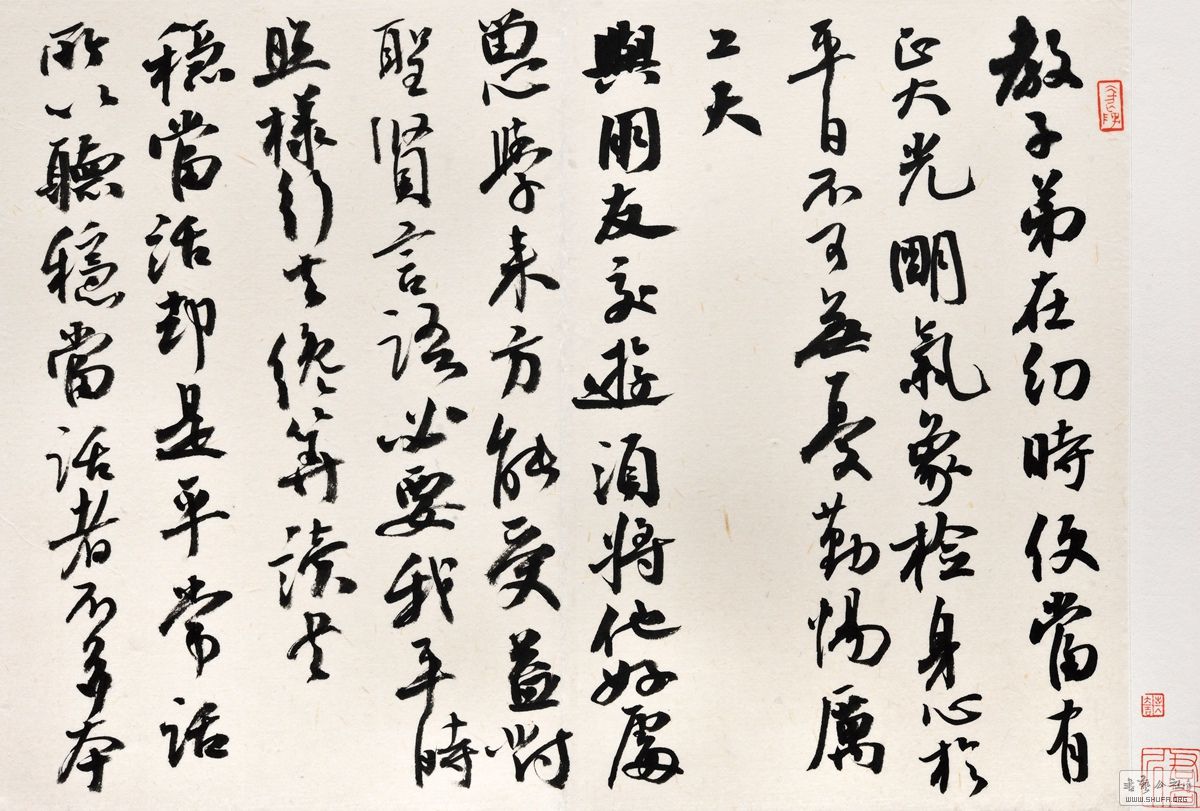 教子弟在幼時便當有
正大光明氣象檢身心於
平日不可無憂勤惕厲
工夫
與朋友交遊須將他好處
留心學來方能受益對
聖賢言語必要我平時
照樣行去纔算讀書
穩當話却是平常話
所以聽穩當話者不多本
WWW.SHUFA.ORG